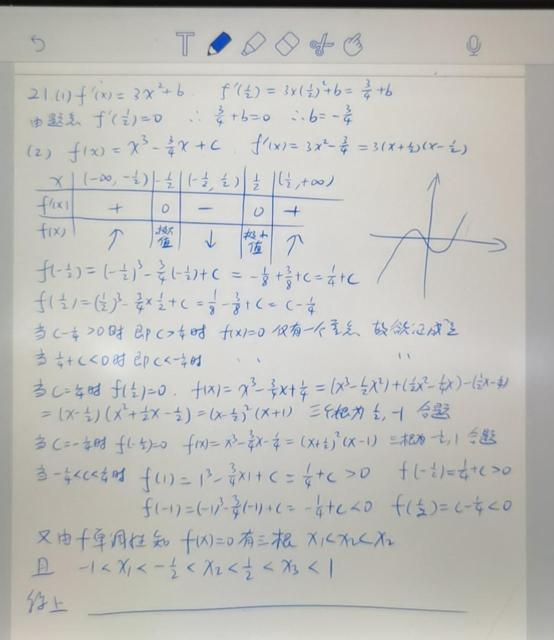 21.(1) f'(x)=3x²+b  f'(½)=3×(½)²+b=¾+b
由题意 f'(½)=0 ∴ ¾+b=0 ∴b=-¾
(2) f(x)=x³-¾x+c  f'(x)=3x²-¾=3(x+½)(x-½)
x (-∞,-½) -½ (-½,½) ½ (½,+∞)
f'(x) + 0 - 0 +
f(x) ↑ 极大值 ↓ 极小值 ↑
f(-½)=(-½)³-¾(-½)+c=-⅛+⅜+c=¼+c
f(½)=(½)³-¾×½+c=⅛-⅜+c=c-¼
当c-¼>0时 即c>¼时 f(x)=0 仅有一个零点 故欲证成立
当¼+c<0时 即c<-¼时 '' ''
当c=¼时 f(½)=0. f(x)=x³-¾x+¼=(x³-½x²)+(½x²-¼x)-(½x-¼)
=(x-½)(x²+½x-½)=(x-½)²(x+1) 三个根为½,-1 合题
当c=-¼时 f(-½)=0 f(x)=x³-¾x-¼=(x+½)²(x-1) 三根为-½,1 合题
当-¼<c<¼时 f(1)=1³-¾×1+c=¼+c>0 f(-½)=¼+c>0
f(-1)=(-1)³-¾(-1)+c=-¼+c<0 f(½)=c-¼<0
又由f单调性知 f(x)=0有三根 x₁<x₂<x₂
且 -1<x₁<-½<x₂<½<x₃<1
综上